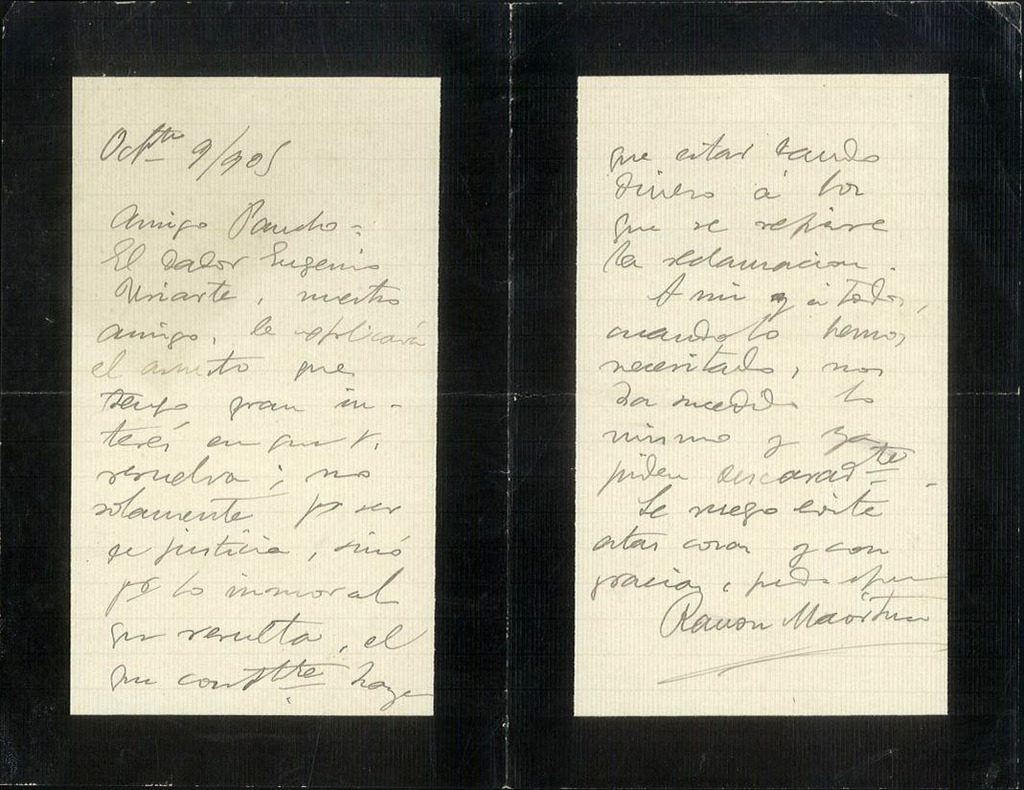 Octbre 9/905
Amigo Pancho:
El dador Eugenio
Uriarte, nuestro
amigo, le esplicará
el asunto que
tengo gran in-
terés en que V.
resuelva; no
solamente pr ser
de justicia, sinó
pr lo inmoral
que resulta, el
que constte haya
que estar dando
dinero á los
que se refiere
la reclamacion.
A mi y á todos,
cuando lo hemos
necesitado, nos
ha sucedido lo
mismo y ya
piden descaradte.
Le ruego evite
estas cosas y con
gracias, queda
Ramon